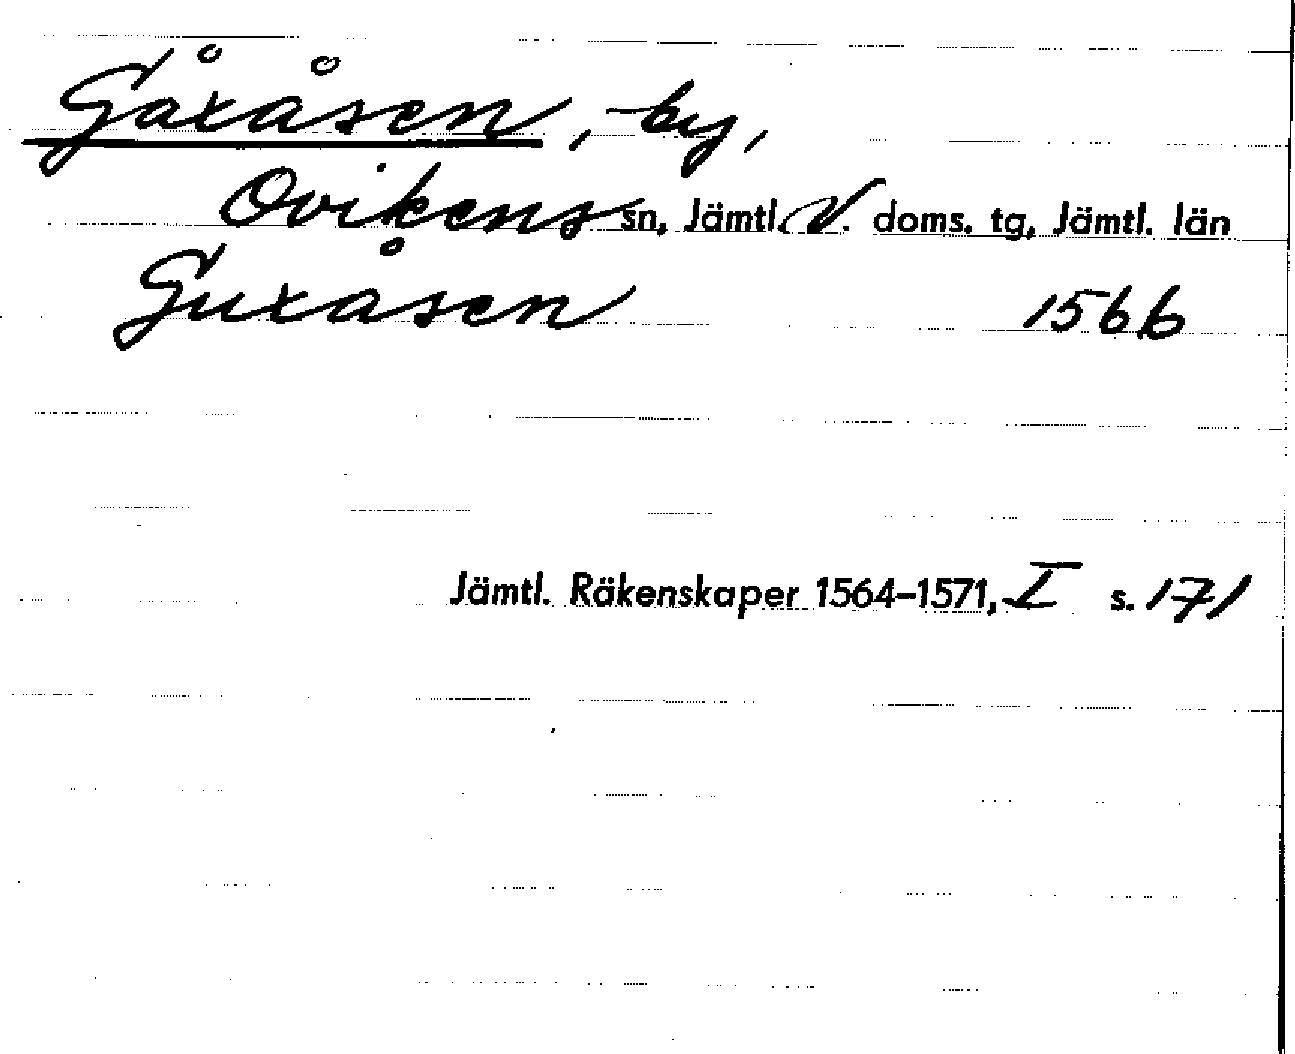 Gåxåsen, by,
Ovikens sn, Jämtl. V. doms. tg, Jämtl. län
Guxåsen 1566
Jämtl. Räkenskaper 1564–1571, I s. 171